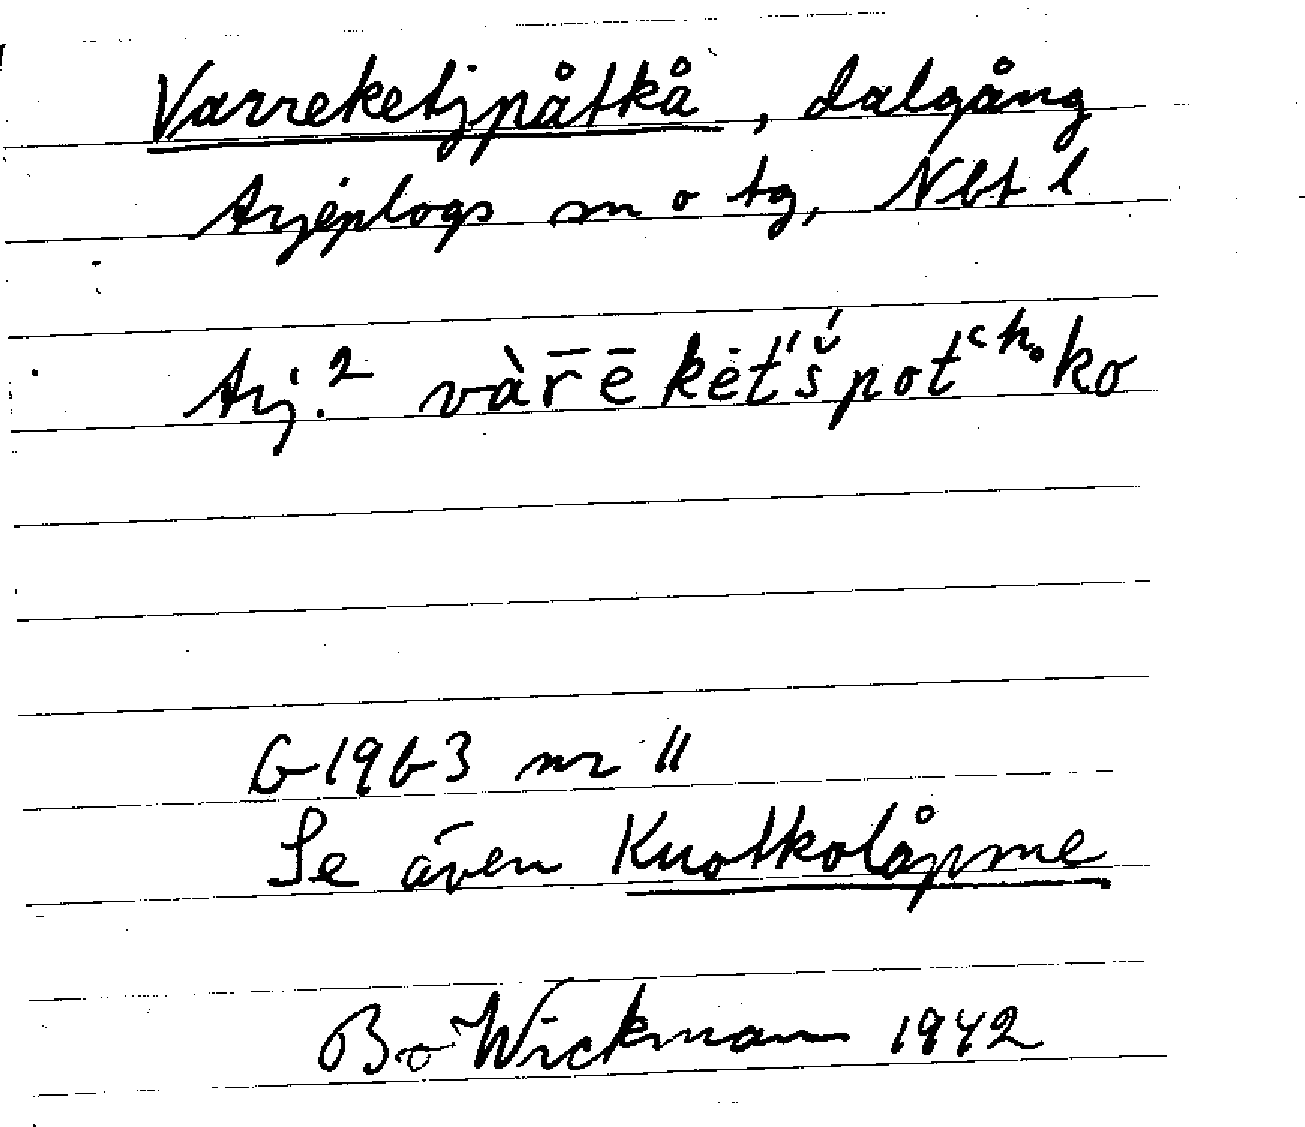 Varreketjpåtkå, dalgång
Arjeplogs sn o tg, Nbt l
Arj.² vàr̄ē kėt́'š́potᶜʰ₀ko
G 1963 nr 11
Se även Kuotkolåpme
Bo Wickman 1942